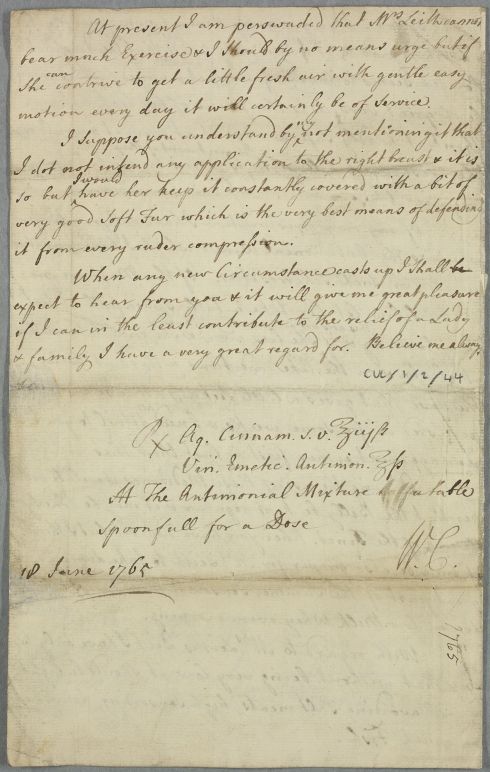 At present I am perswaded that Mrs Leith cannot
bear much Exercise & I should by no means urge but if
She can contrive to get a little fresh air with gentle easy
motion every day it will certainly be of Service.
I Suppose you understand by my not mentioning it that
I do not intend any application to the right breast & it is
so but I would have her keep it constantly covered with a bit of
very good Soft Fur which is the very best means of defending
it from every ruder compression.
When any new Circumstance casts up I shall be
expect to hear from you & it will give me great pleasure
if I can in the least contribute to the relief of a Lady
& family I have a very great regard for. Believe me always
CUL/1/2/44
℞ Aq. Cinnam. s. v. ℥iijß
Vin. Emetic. Antimon. ℥ß
The Antimonial Mixture table
Spoonfull for a Dose
W.C.
18 June 1765
1765